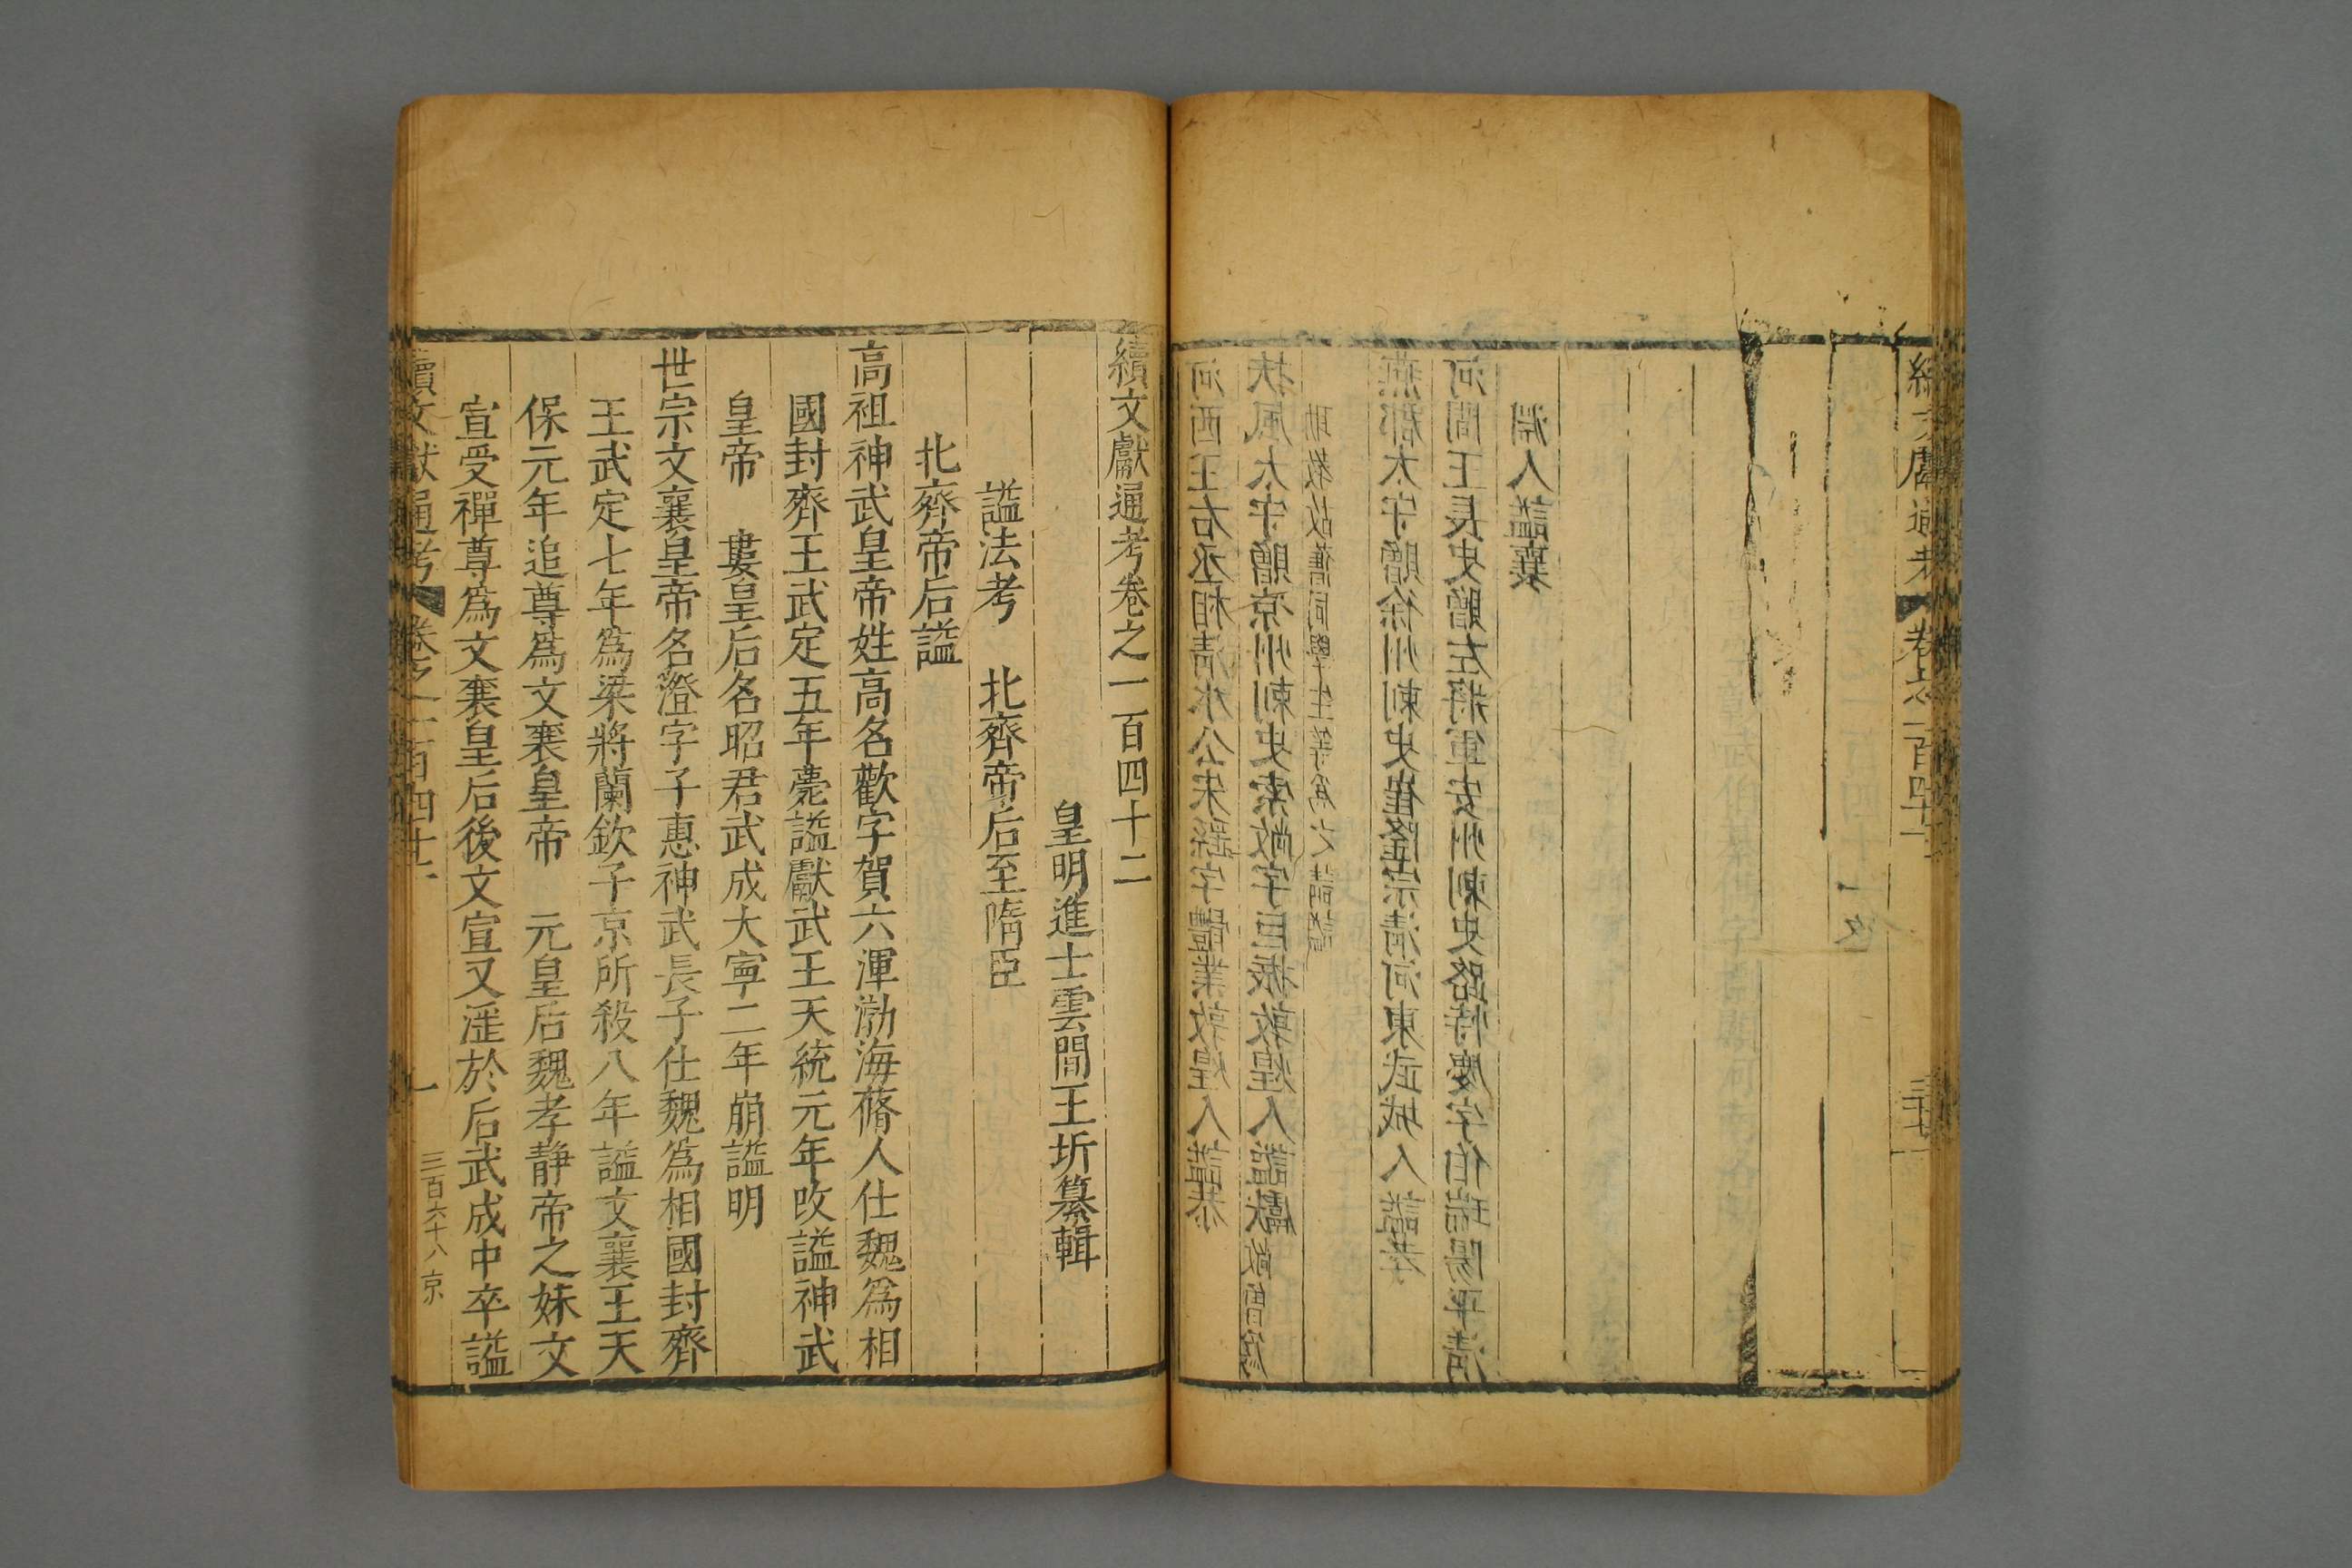 續文獻通考 卷之一百四十一
河西王右丞相清水公宋繇字體業敦煌人謚恭
扶風太守贈涼州刺史索敞字巨振敦煌人謚獻敞曾為
助教故舊同學生等為之請謚
燕郡太守贈徐州刺史崔隆宗清河東武城人謚孝
河間王長史贈左將軍安州刺史路恃慶字伯瑞陽平清
淵人謚襄
續文獻通考卷之一百四十二
皇明進士雲間王圻纂輯
謚法考 北齊帝后至隋臣
北齊帝后謚
高祖神武皇帝姓高名歡字賀六渾渤海蓨人仕魏為相
國封齊王武定五年薨謚獻武王天統元年改謚神武
皇帝 婁皇后名昭君武成大寧二年崩謚明
世宗文襄皇帝名澄字子惠神武長子仕魏為相國封齊
王武定七年為梁將蘭欽子京所殺八年謚文襄王天
保元年追尊為文襄皇帝 元皇后魏孝靜帝之妹文
宣受禪尊為文襄皇后後文宣又滛於后武成中卒謚
續文獻通考 卷之一百四十二 一 三百六十八 京